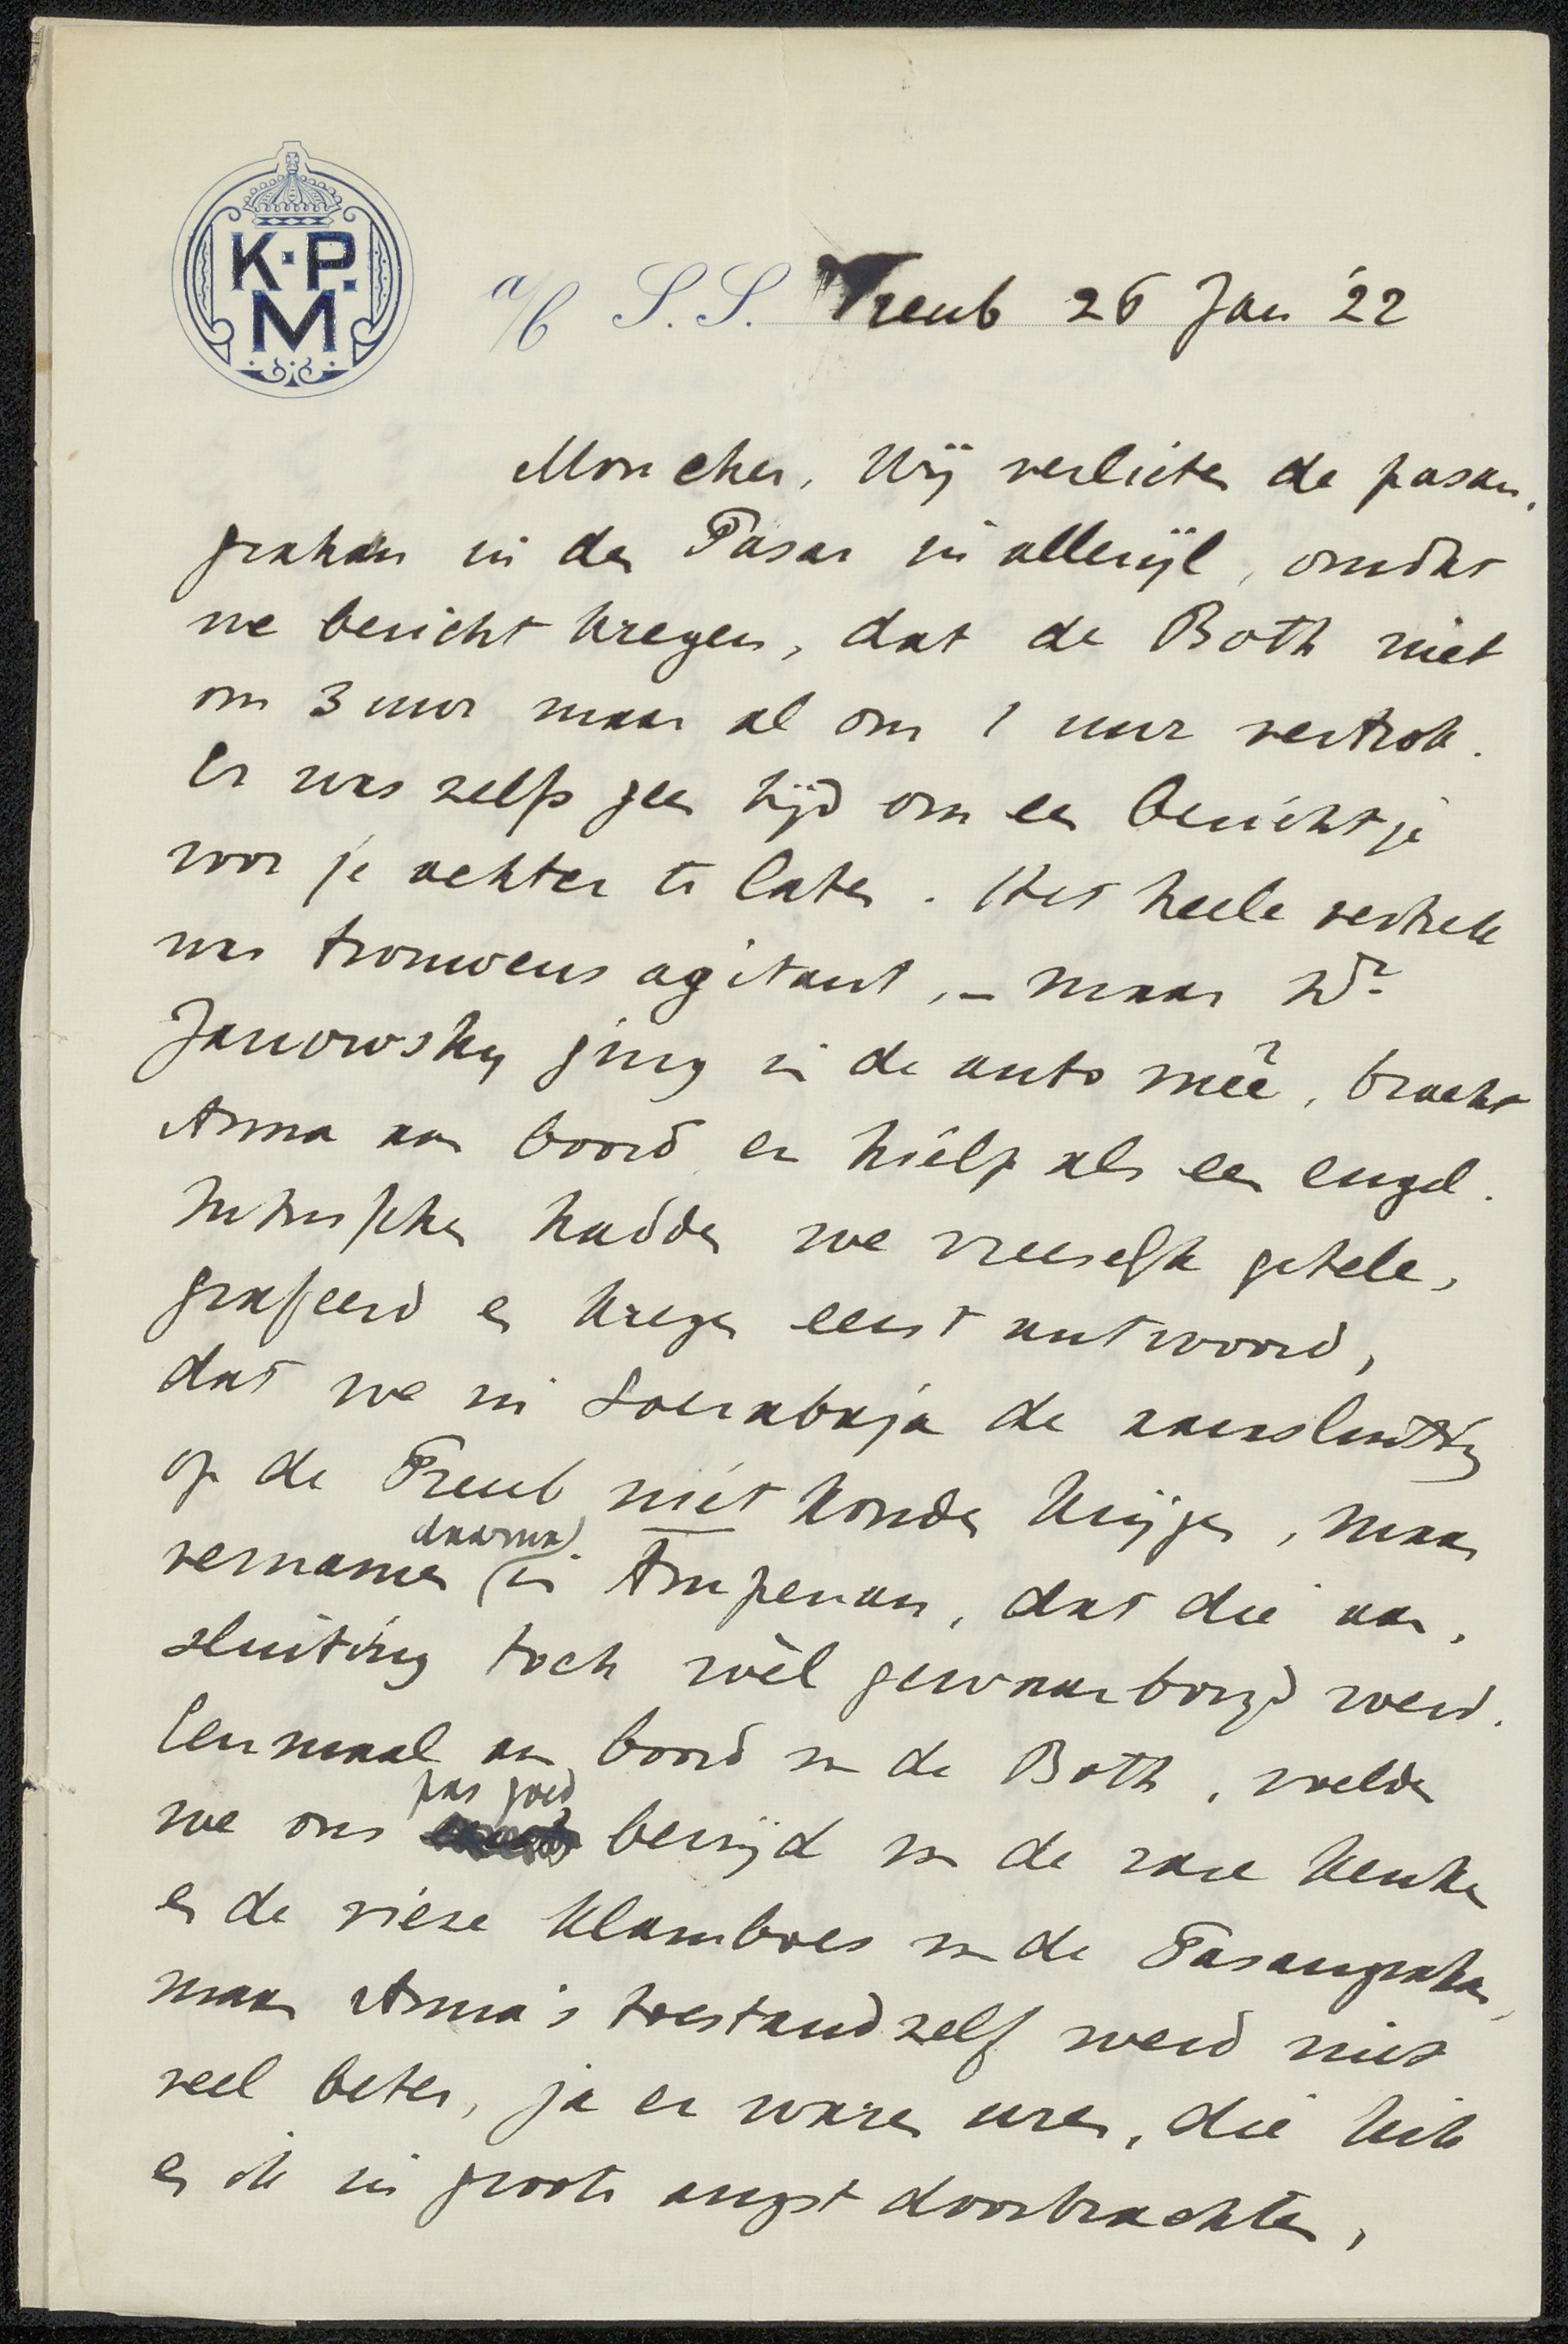 K.P.M.
a/b S.S. Treub 26 Jan '22
Mon cher, Wij verlieten de pasan-
grahan in den Pasar in allerijl, omdat
we bericht kregen, dat de Both niet
om 3 uur maar al om 1 uur vertrok.
Er was zelfs geen tijd om een berichtje
voor je achter te laten. Het heele vertrek
was trouwens agitant, - maar Dr
Janowsky ging in de auto meê, bracht
Anna aan boord en hielp als een engel.
Intusschen hadden we vreeselijk getele-
grafeerd en kregen eerst antwoord,
dat we in Soerabaja de aansluiting
op de Treub niet konden krijgen, maar
vernamen (daarna) in Ampenan, dat die aan-
sluiting toch wèl gewaarborgd werd.
Eenmaal aan boord van de Both, voelden
we ons pas goed bevrijd van de rare keuken
en de vieze klamboes van de Pasangrahan,
maar Anna's toestand zelf werd niet
veel beter, ja er waren uren, die Kik
en ik in groote angst doorbrachten,